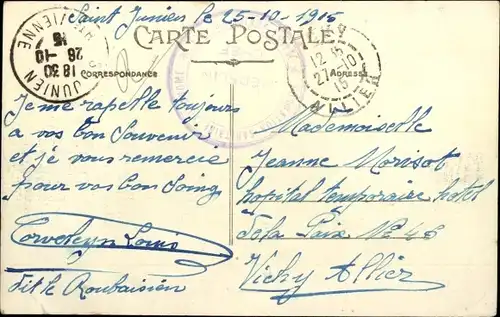 Saint Junien le 25-10-1915
CARTE POSTALE
CORRESPONDANCE
ADRESSE
JUNIEN
18 30
26 -10
15
VIENNE
12 15
27 -10
15
ALLIER
Je me rapelle toujours
a vos bon Souvenir
et je vous remercie
pour vos bon Soins
Louis
dit le Roubaisien
Mademoiselle
Jeanne Morisot
hopital temporaire hotel
de la Paix N° 46
Vichy Allier